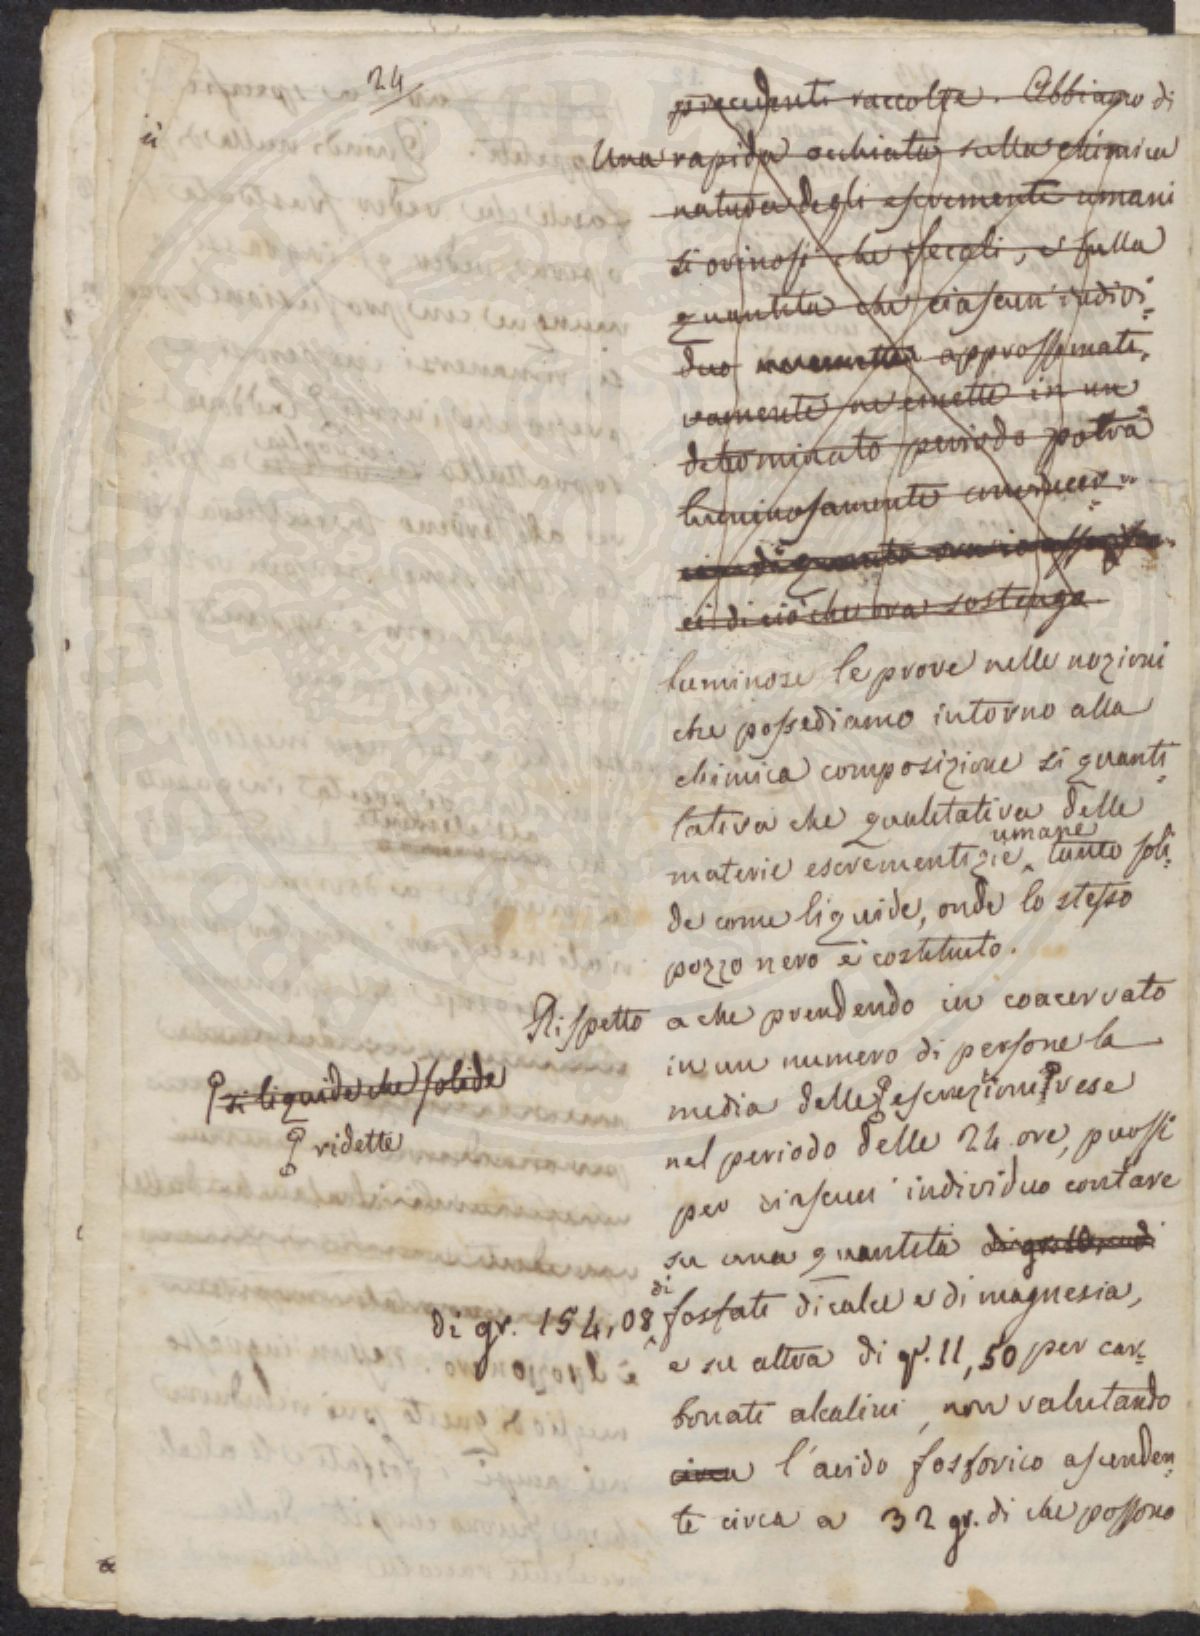 24
precedenti raccolte. Abbiamo di
Una rapida occhiata sulla chimica
natura degli escrementi umani
si orinosi che fecali, e sulla
quantità che ciascun' indivi-
duo approssimati-
vamente ne emette in un
determinato periodo potrà
luminosamente convincer-
ci di ciò che ora sostengo.
luminose le prove nelle nozioni
che possediamo intorno alla
chimica composizione si quanti-
tativa che qualitativa delle
materie escrementizie umane tanto soli-
de come liquide, onde lo stesso
pozzo nero è costituito.
Rispetto a che prendendo in coacervato
in un numero di persone la
media delle escrezioni rese
si liquide che solide
ridette
nel periodo delle 24 ore, puossi
per ciascun' individuo contare
su una quantità
di gr. 154,08 di fosfati di calce e di magnesia,
e su altra di gr. 11,50 per car-
bonati alcalini, non valutando
circa l'acido fosforico ascenden-
te circa a 32 gr. di che possono